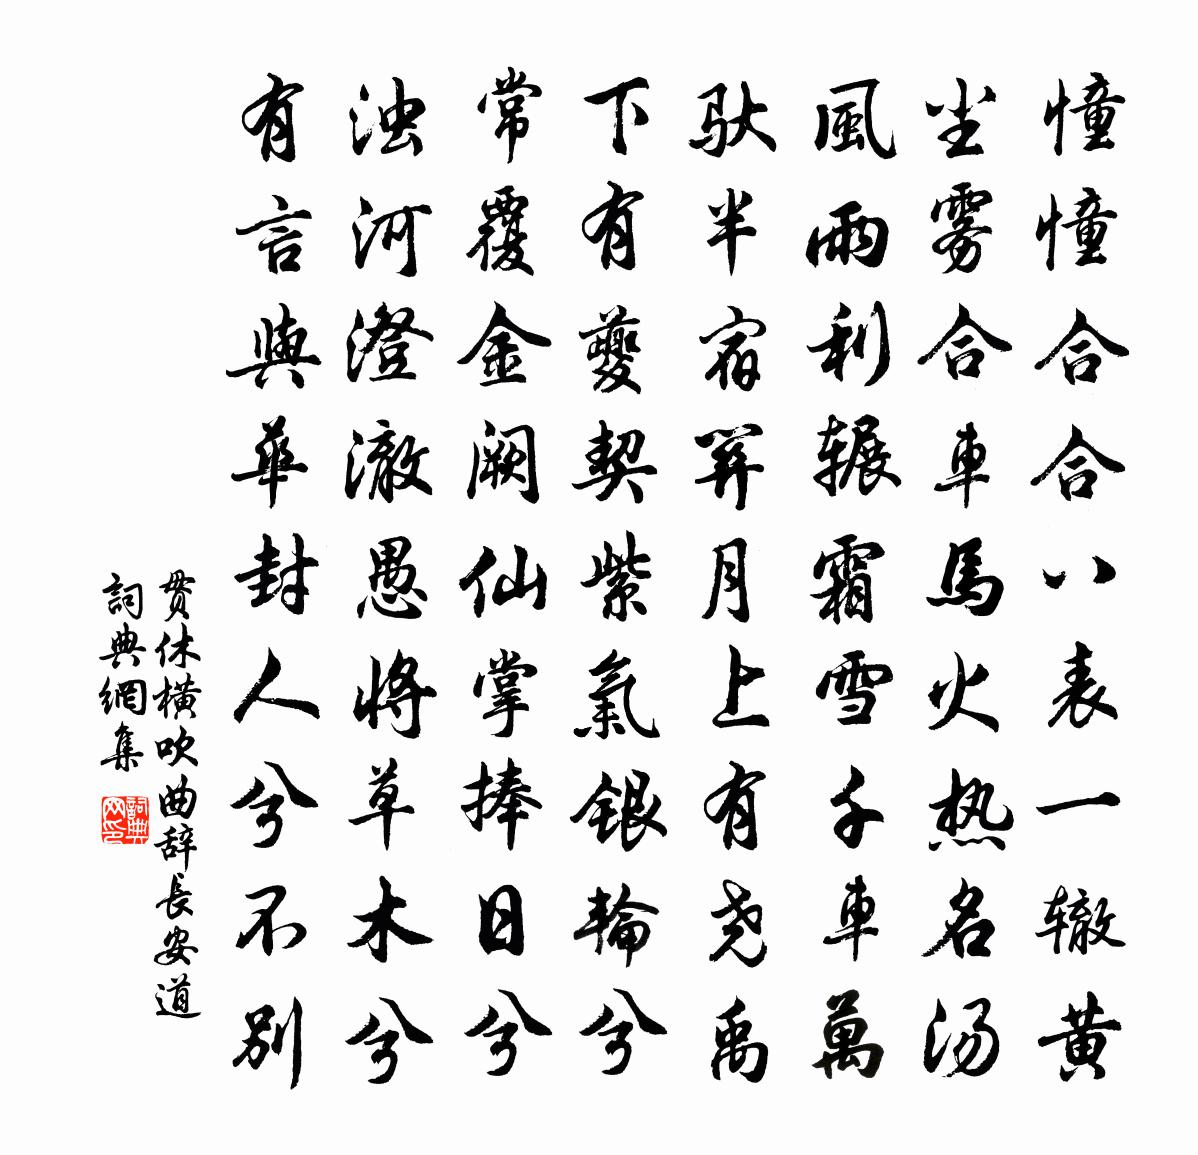 憧憧合合八表一辙黄
尘雾合車馬火热名汤
風雨利辗霜雪千車萬
驮半宿關月上有尧禹
下有夔契紫氣銀輪兮
常覆金阙仙掌捧日兮
浊河澄澈愚將草木兮
有言與華封人兮不別
贯休橫吹曲辞長安道
詞典網集